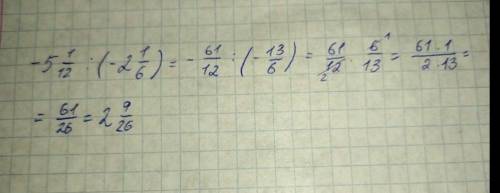 -5 1/12 : (-2 1/6) = - 61/12 : (- 13/6) = 61/12₂ · 6¹/13 = 61·1/2·13 =
= 61/26 = 2 9/26